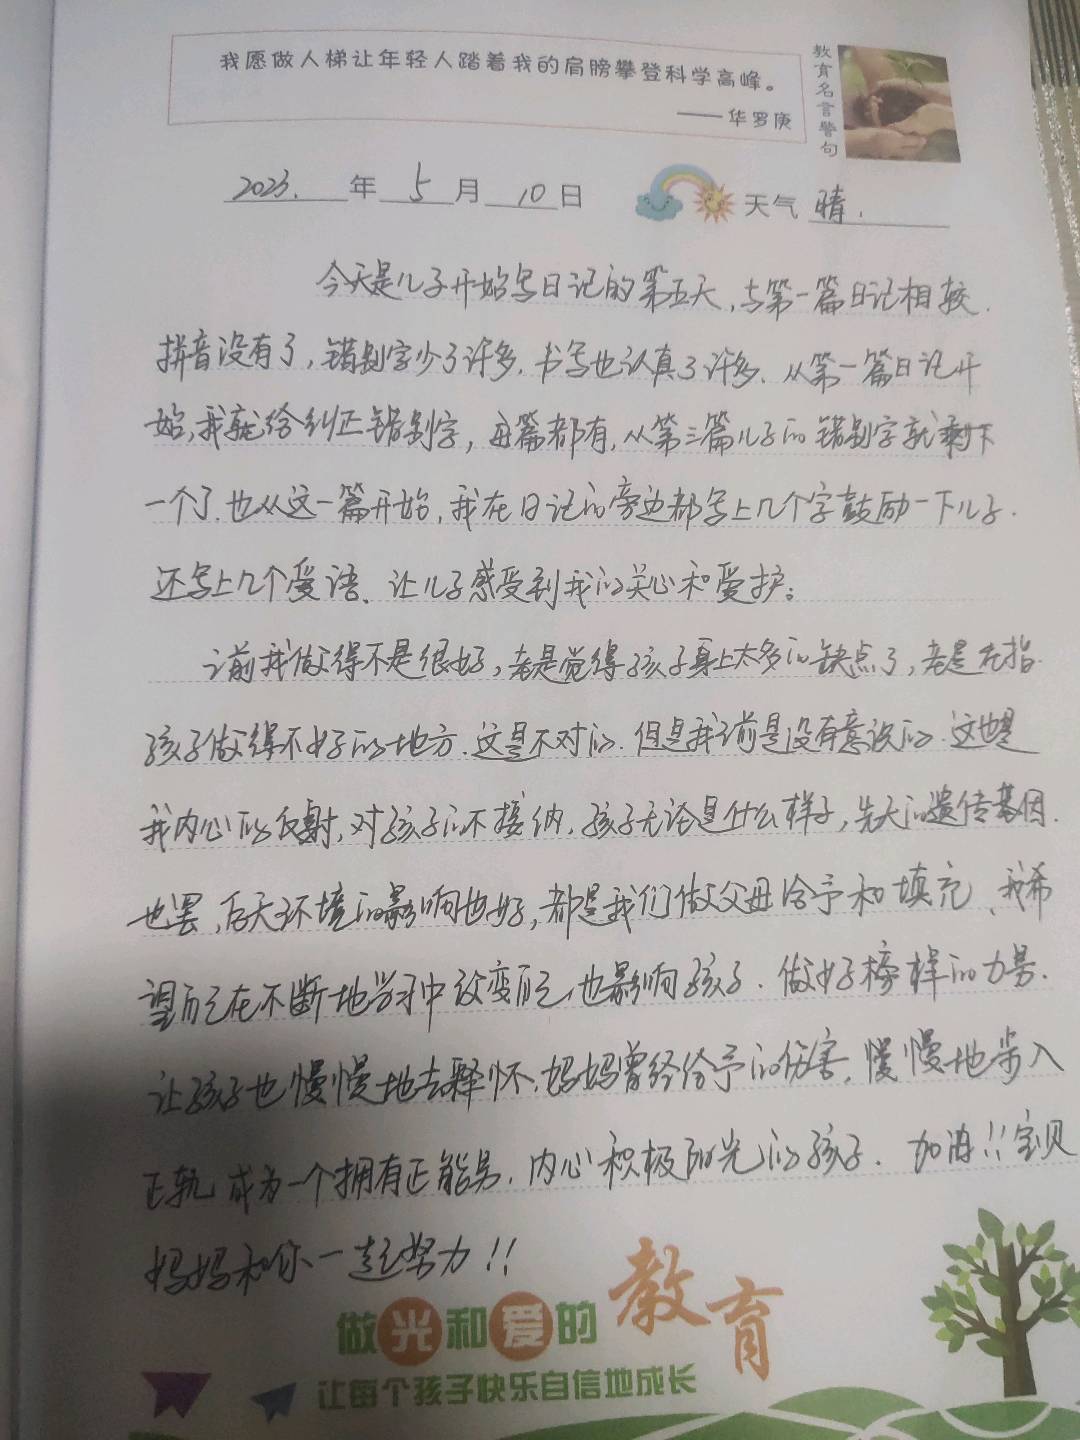 我愿做人梯让年轻人踏着我的肩膀攀登科学高峰。
——华罗庚
教育名言警句
2023.年5月10日 天气 晴.
今天是儿子开始写日记的第五天,与第一篇日记相较.
拼音没有了,错别字少了许多.书写也认真了许多.从第一篇日记开
始,我就给纠正错别字,每篇都有,从第三篇儿子的错别字就剩下
一个了.也从这一篇开始,我在日记的旁边都写上几个字鼓励一下儿子.
还写上几个爱语、让儿子感受到我的关心和爱护;
以前我做得不是很好,老是觉得孩子身上太多的缺点了,老是在指
孩子做得不好的地方.这是不对的.但是我以前是没有意识的.这也是
我内心的反射,对孩子的不接纳.孩子无论是什么样子,先天的遗传基因.
也罢,后天环境的影响也好,都是我们做父母给予和填充、我希
望自己在不断地学习中改变自己,也影响孩子.做好榜样的力量.
让孩子也慢慢地去释怀.妈妈曾经给予的伤害,慢慢地步入
正轨 成为一个拥有正能量,内心积极阳光的孩子. 加油!!宝贝
妈妈和你一起努力!!
做光和爱的教育
让每个孩子快乐自信地成长